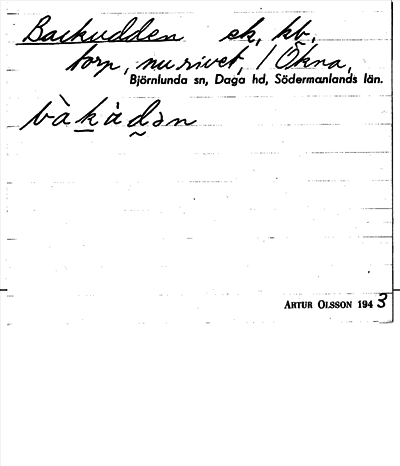 Backudden ek, kb.
torp, nu rivet, / Ökna,
Björnlunda sn, Daga hd, Södermanlands län.
bàkàdən
ARTUR OLSSON 1943